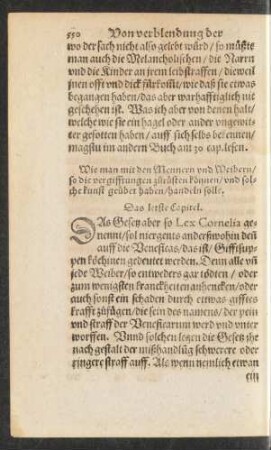 550 Von verblendung der
wo der sach nicht also gelebt würd / so müste
man auch die Melancholischen / die Narrn
und die Kinder an jrem leib straffen / dieweil
jnen offt und dick fürkompt / wie daß sie etwas
begangen haben / das aber warhafftiglich nit
geschehen ist. Was ich aber von denen halt /
welche wie sie ein hagel oder ander ungewit-
ter gesotten haben / auff sich selbs bekennen /
magstu im andern Buch am 30 cap. lesen.
Wie man mit den Mennern und Weibern /
so die vergifftungen zurüsten können / und sol-
che kunst geübet haben / handeln solle.
Das letste Capitel.
DAs Gesetz aber so Lex Cornelia ge-
nennt / sol niergents anderstwohin deñ
auff die Veneficas / das ist / Gifftsup-
pen köchinen gedeutet werden. Denn alle uñ
jede Weiber / so entweders gar tödten / oder
zum wenigsten kranckheiten anhencken / oder
auch sonst ein schaden durch etwas gifftes
krafft zufügen / die sein des namens / der pein
und straff der Veneficarum werd und unter
worffen. Unnd solchen legen die Gesetz jhr
nach gestalt der mißhandlũg schwerere oder
ringere straff auff. Als wenn nemlich etwan
ein